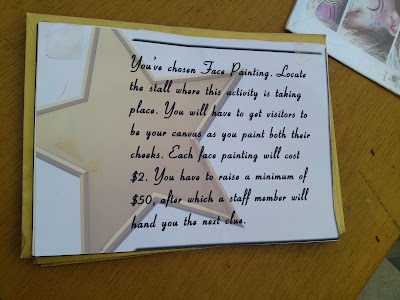 You've chosen Face Painting. Locate
the stall where this activity is taking
place. You will have to get visitors to
be your canvas as you paint both their
cheeks. Each face painting will cost
$2. You have to raise a minimum of
$50, after which a staff member will
hand you the next clue.